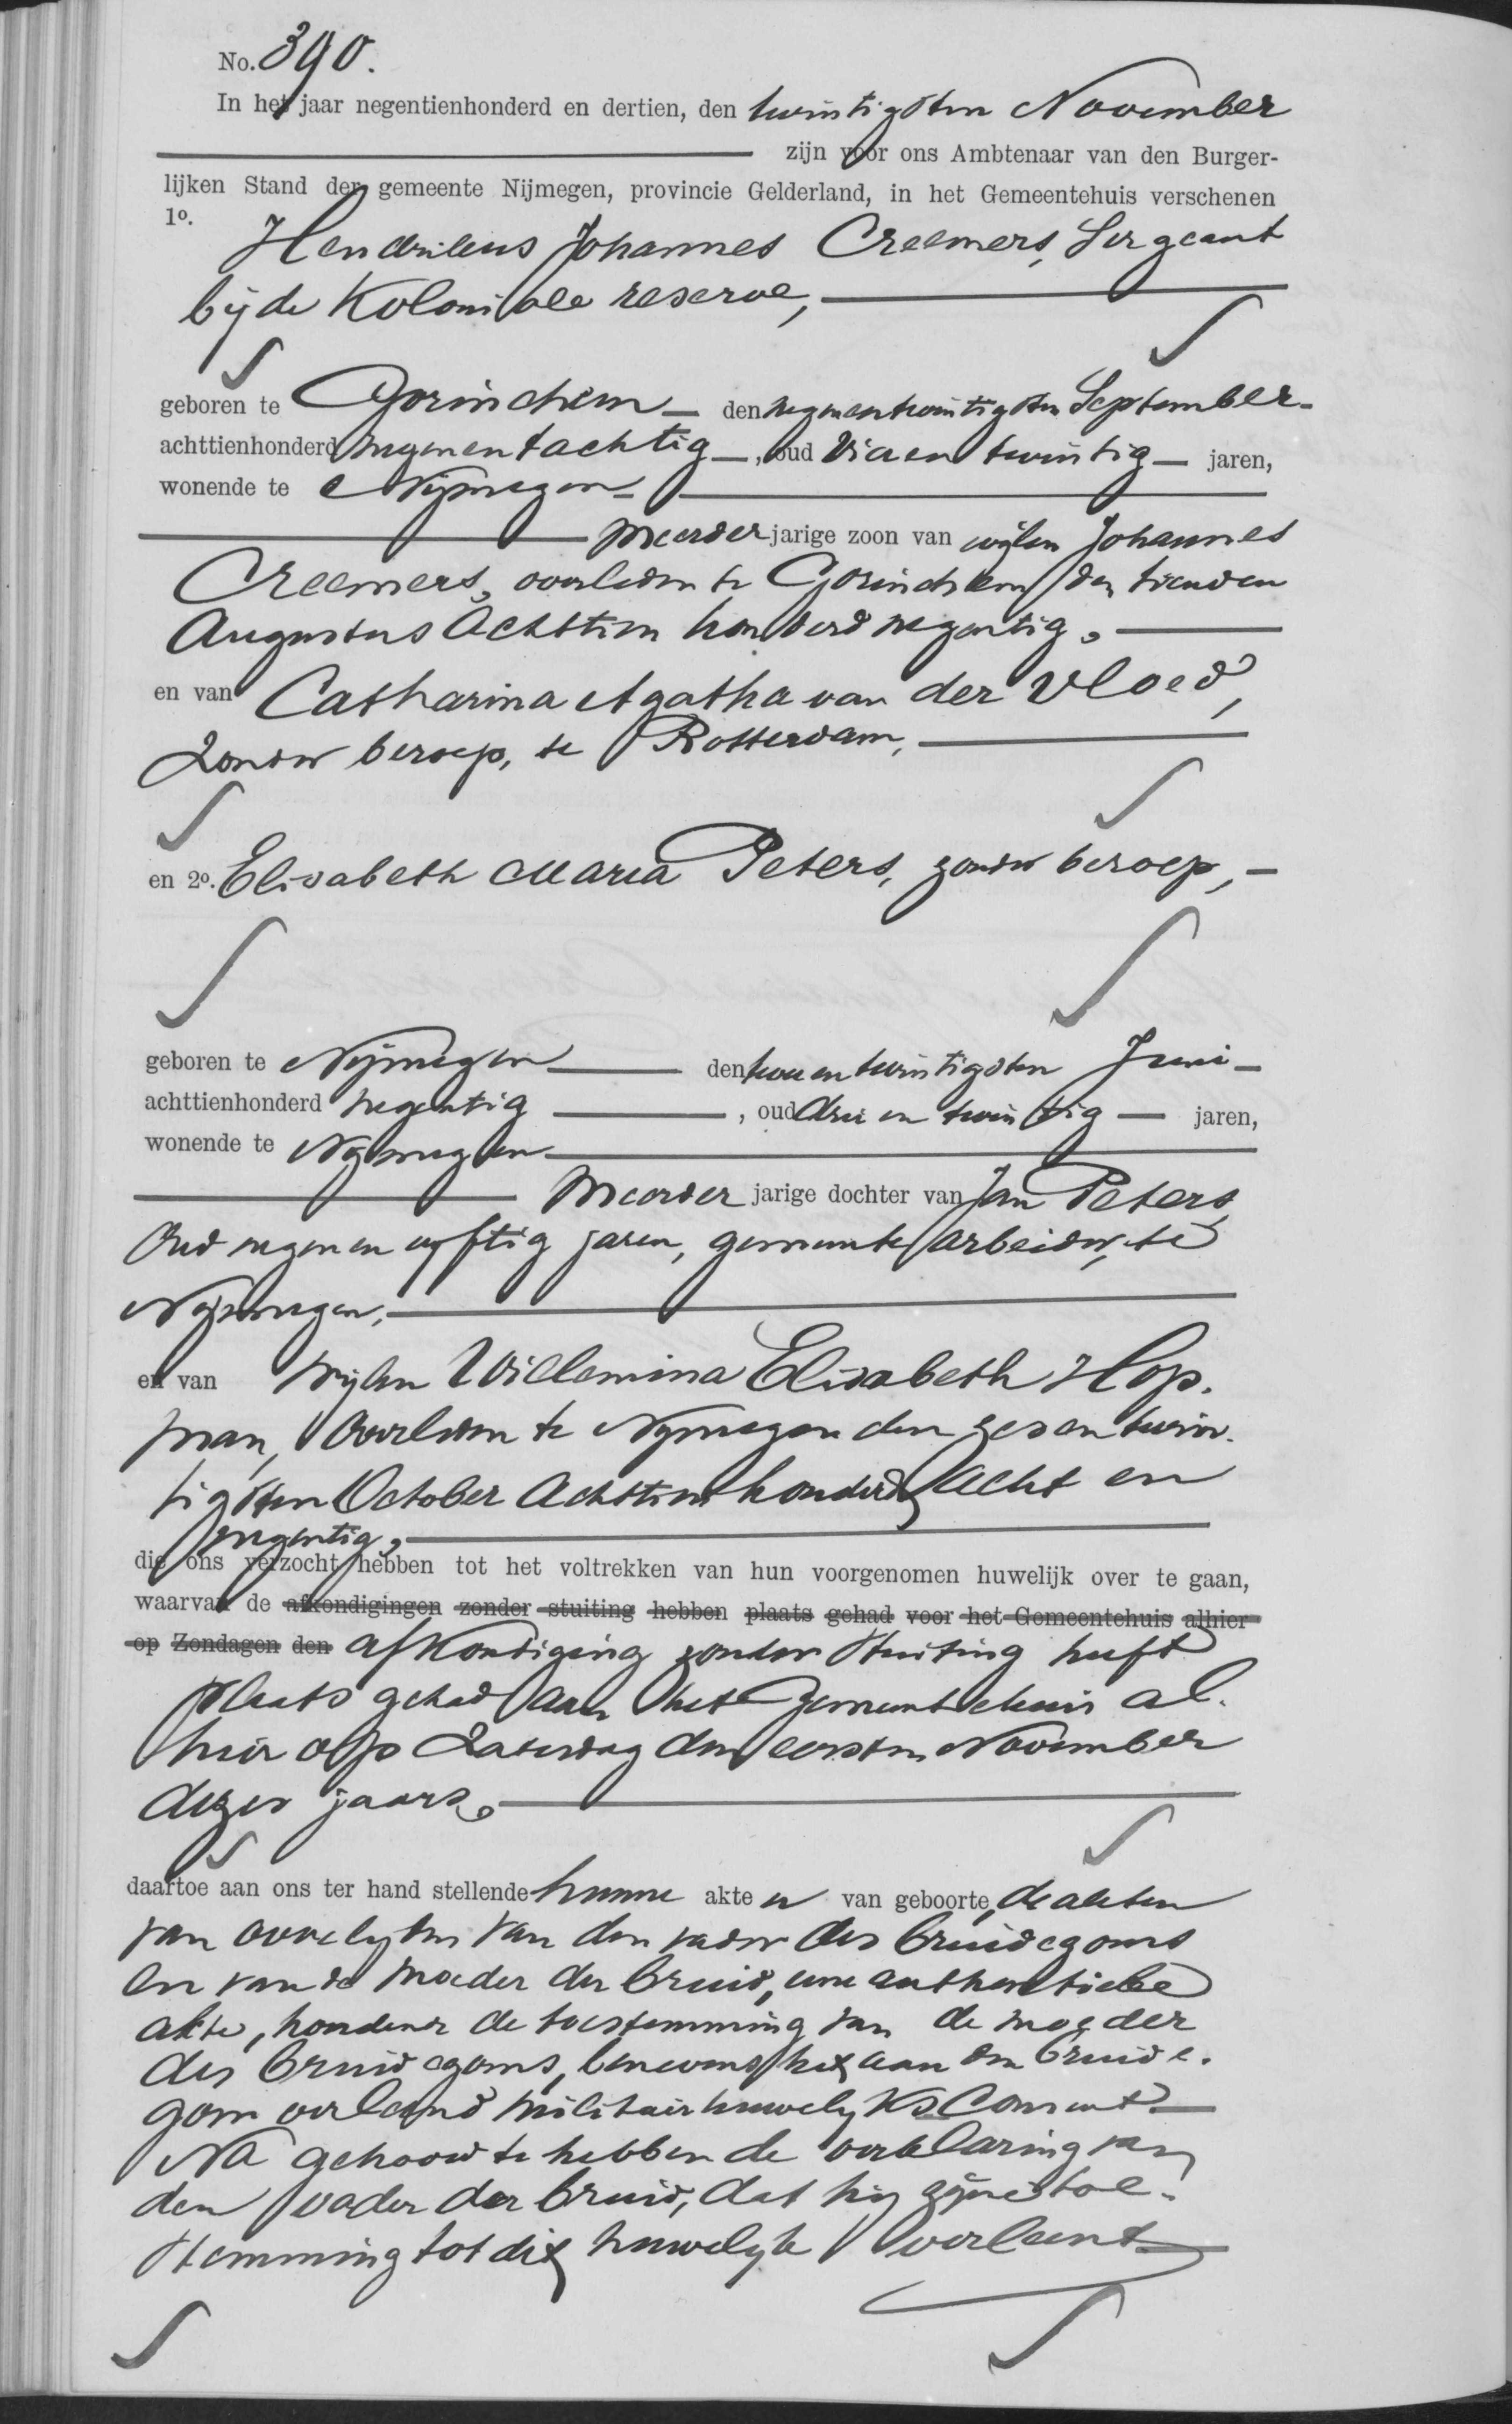 No. 390.
In het jaar negentienhonderd en dertien, den twintigsten November
zijn voor ons Ambtenaar van den Burger-
lijken Stand der gemeente Nijmegen, provincie Gelderland, in het Gemeentehuis verschenen
1o.
Hendrikus Johannes Creemers, Sergeant
bij de Koloniale reserve,
geboren te Gorinchem den negenentwintigsten September
achttienhonderd negenentachtig, oud vierentwintig jaren,
wonende te Nijmegen
meerderjarige zoon van wijlen Johannes
Creemers, overleden te Gorinchem den tienden
Augustus Achttienhonderd negentig,
en van Catharina Agatha van der Vloed,
Zonder beroep, te Rotterdam,
en 2o. Elisabeth Maria Peters, zonder beroep,
geboren te Nijmegen den tweeentwintigsten Juni
achttienhonderd negentig, oud drie en twintig jaren,
wonende te Nijmegen
meerder jarige dochter van Jan Peters,
Oud negenen vijftig jaren, gemeente arbeider, te
Nijmegen,
en van wijlen Willemina Elisabeth Hop-
man, Overleden te Nijmegen den zesentwin-
tigsten October Achttienhonderd Acht en
negentig,
die ons verzocht hebben tot het voltrekken van hun voorgenomen huwelijk over te gaan,
waarvan de afkondigingen zonder stuiting hebben plaats gehad voor het Gemeentehuis alhier
op Zondagen den afkondiging zonder stuiting heeft
plaats gehad aan het Gemeentehuis al-
hier op Zaterdag den eersten November
dezes jaars,
daartoe aan ons ter hand stellende hunne akten van geboorte, de akten
van overlijden van den vader des bruidegoms
en van de moeder der bruid, eene authentieke
akte, houdende de toestemming van de moeder
des bruidegoms, benevens het aan den bruide-
gom verleend militair huwelijks Consent
Na gehoord te hebben de verklaring van
den vader der bruid, dat hij zijne toe-
stemming tot dit huwelijk verleent